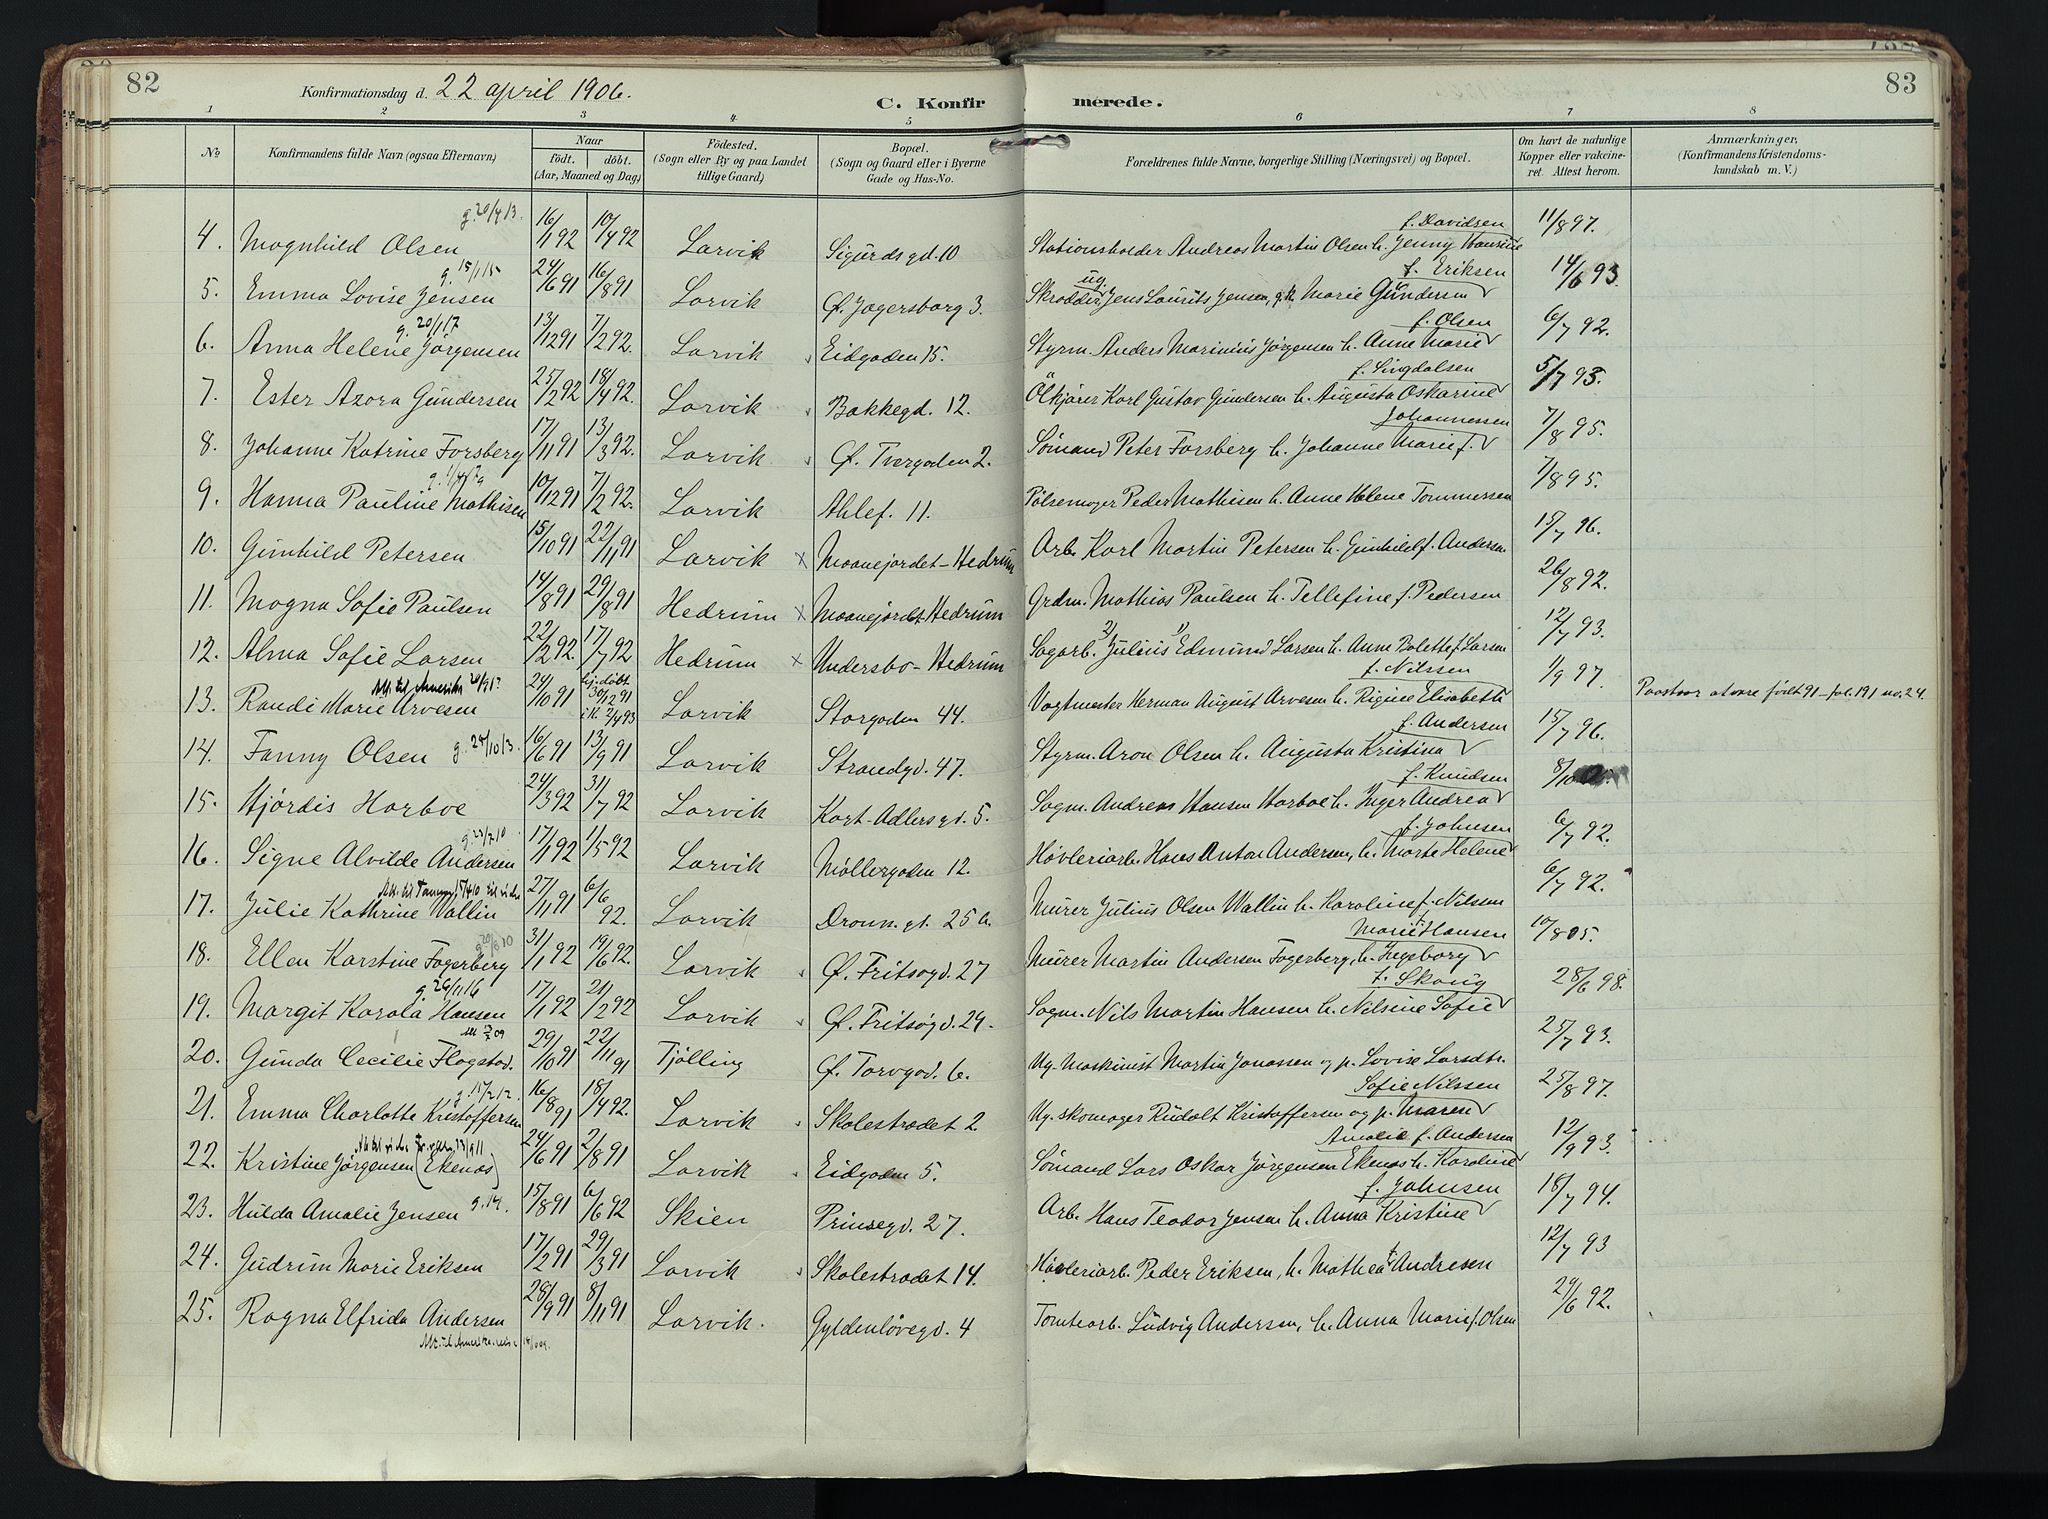 82
Konfirmationsdag d. 22 april 1906.
C. Konfirmerede.
83
1 2 3 4 5 6 7 8
No
Konfirmandens fulde Navn (ogsaa Efternavn)
Naar
født. døbt.
(Aar, Maaned og Dag)
Fødested.
(Sogn eller By og paa Landet
tillige Gaard)
Bopæl.
(Sogn og Gaard eller i Byerne
Gade og Hus-No.
Forældrenes fulde Navne, borgerlige Stilling (Næringsvei) og Bopæl.
Om havt de naturlige
Kopper eller vakcine-
ret. Attest herom.
Anmærkninger,
(Konfirmandens Kristendoms-
kundskab m. V.)
g. 20/4 13. f. Davidsen
4. Magnhild Olsen 16/1 92 10/4 92 Larvik Sigurdsgd. 10 Stationsholder Andreas Martin Olsen h. Jenny Hansine 11/8 97.
g. 15/1 15 ug. f. Eriksen
5. Emma Lovise Jensen 24/6 91 16/8 91 Larvik Ø. Jagersborg 3. Skrædder Jens Laurits Jensen, g.k. Marie Gundersen 14/6 93.
g. 20/1 17 f. Olsen
6. Anna Helene Jørgensen 13/12 91 7/2 92. Larvik Eidgaden 15. Styrm. Anders Marinius Jørgensen h. Anne Marie 6/7 92.
f. Singdalsen
7. Ester Azora Gundersen 25/2 92 18/4 92. Larvik Bakkegd. 12. Ølkjører Karl Gustav Gundersen h. Augusta Oskarine 5/7 93.
Johannessen
8. Johanne Katrine Forsberg 17/11 91 13/3 92. Larvik Ø. Tvergaden 2. Sømand Peter Forsberg h. Johanne Marie f. 7/8 95.
9. Hanna Pauline Mathisen 10/12 91 7/2 92. Larvik Ahlef. 11. Pølsemager Peder Mathisen h. Anne Helene Tommessen 7/8 95.
10. Gunhild Petersen 15/10 91 22/11 91 Larvik x Moanejordet-Hedrum Arb. Karl Martin Petersen h. Gunhild f. Andersen 15/7 96.
11. Magna Sofie Paulsen 14/8 91 29/8 91 Hedrum x Moanejordet-Hedrum Grdm. Mathias Paulsen h. Tellefine f. Pedersen 26/8 92.
12. Alma Sofie Larsen 22/2 92. 17/7 92 Hedrum x Undersbo-Hedrum Sagarb. 2) Julius 1) Edmund Larsen h. Anne Bolette f. Larsen 12/7 93.
Att. til Amerika hj.døbt f. Nilssen
13. Randi Marie Arvesen 24/10 91 30/12 91 i K. 2/4 93 Larvik Storgaden 44. Vagtmester Herman August Arvesen h. Rigine Elisabeth 1/9 97. Paastaar at være født 91 - fol. 191 no. 24.
f. Andersen
14. Fanny Olsen g. 24/10 13. 16/6 91 13/9 91 Larvik Strandgd. 47. Styrm. Aron Olsen h. Augusta Kristina 15/7 96.
f. Knudsen
15. Hjørdis Harboe 24/3 92 31/7 92 Larvik Kort-Adlersgd. 5. Sagm. Andreas Hansen Harboe h. Inger Andrea 8/10
g. 23/7 10 f. Johnsen
16. Signe Alvilde Andersen 17/1 92 1/5 92 Larvik Møllergaden 12. Høvleriarb. Hans Anton Andersen, h. Marte Helene 6/7 92.
17. Julie Kathrine Wallin 27/11 91 6/6 92. Larvik Dronn.gt. 25 a. Murer Julius Olsen Wallin h. Karoline f. Nilssen 6/7 92.
g. 20/6 10 Marie f. Hansen
18. Ellen Karstine Fagerberg 31/1 92 19/6 92. Larvik Ø. Fritsøgd. 27 Murer Martin Andersen Fagerberg, h. Ingeborg 10/8 05.
g. 26/11 16 f. Skoug
19. Margit Karola Hansen 17/1 92 21/2 92 Larvik Ø. Fritsøgd. 29. Sagm. Nils Martin Hansen h. Nilsine Sofie 28/6 98.
20. Gunda Cecilie Flagstad. 29/10 91 22/11 91 Tjølling Ø. Torvgad. 6. Ug. Maskinist Martin Jonassen og p. Lovise Larsdtr. 25/7 93.
g. 15/2 12. Sofie Nilssen
21. Emma Charlotte Kristoffersen 16/8 91 18/4 92. Larvik Skolestrædet 2 Ug. skomager Rudolt Kristoffersen og p. Maren 25/8 97.
Amalie f. Andersen
22. Kristine Jørgensen (Ekenæs) 24/6 91 2/8 91 Larvik Eidgaden 5. Sømand Lars Oskar Jørgensen Ekenæs h. Karoline 12/9 93.
f. Johnsen
23. Hulda Amalie Jensen g. 14. 15/8 91 6/6 92 Skien Prinsegd. 27. Arb. Hans Teodor Jensen h. Anna Kristine 18/7 94.
24. Gudrun Marie Eriksen 17/2 91 29/3 91 Larvik Skolestrædet 14. Høvleriarb. Peder Eriksen, h. Mathea f. Andresen 12/7 93
25. Ragna Elfrida Andersen 28/9 91 8/11 91 Larvik. Gyldenløvegd. 4 Tomtearb. Ludvig Andersen, h. Anna Marie f. Olsen 29/6 92.